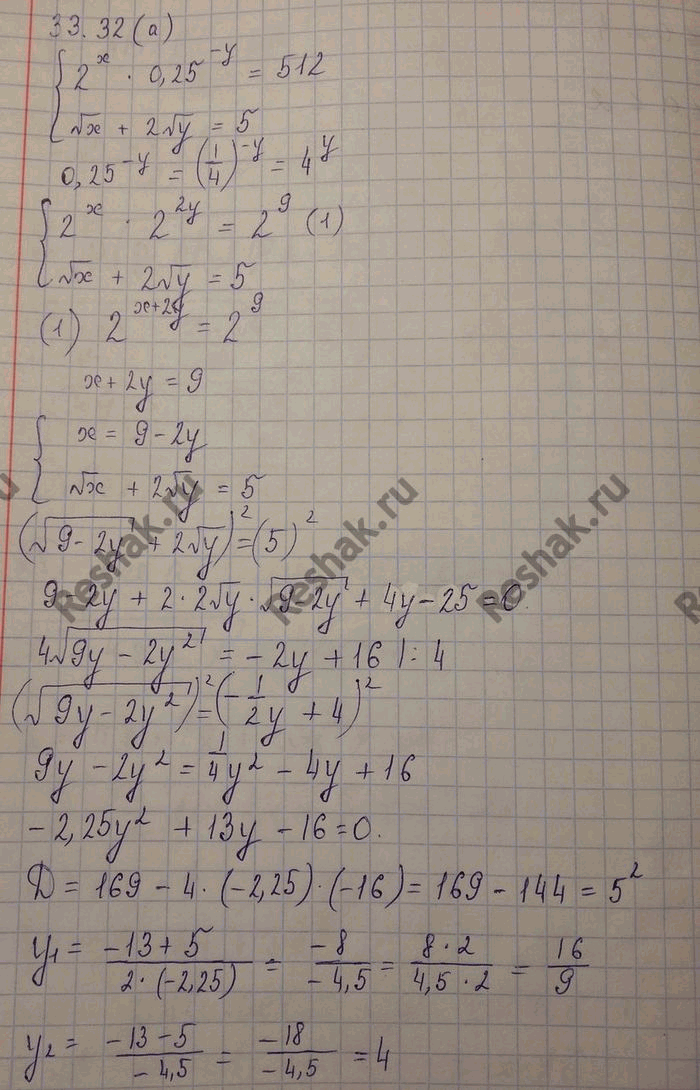 33.32(а)
{ 2^x · 0,25^(-y) = 512
√x + 2√y = 5
0,25^(-y) = (1/4)^(-y) = 4^y
{ 2^x · 2^(2y) = 2^9 (1)
√x + 2√y = 5
(1) 2^(x+2y) = 2^9
x + 2y = 9
{ x = 9 - 2y
√x + 2√y = 5
(√(9-2y) + 2√y)^2 = (5)^2
9 - 2y + 2·2√y·√(9-2y) + 4y - 25 = 0.
4√(9y - 2y^2) = -2y + 16 |: 4
(√(9y - 2y^2))^2 = (-1/2 y + 4)^2
9y - 2y^2 = 1/4 y^2 - 4y + 16
-2,25y^2 + 13y - 16 = 0.
D = 169 - 4·(-2,25)·(-16) = 169 - 144 = 5^2
y1 = (-13 + 5)/(2·(-2,25)) = -8/-4,5 = (8·2)/(4,5·2) = 16/9
y2 = (-13 - 5)/(-4,5) = -18/-4,5 = 4
Reshak.ru
Reshak.ru
Reshak.ru